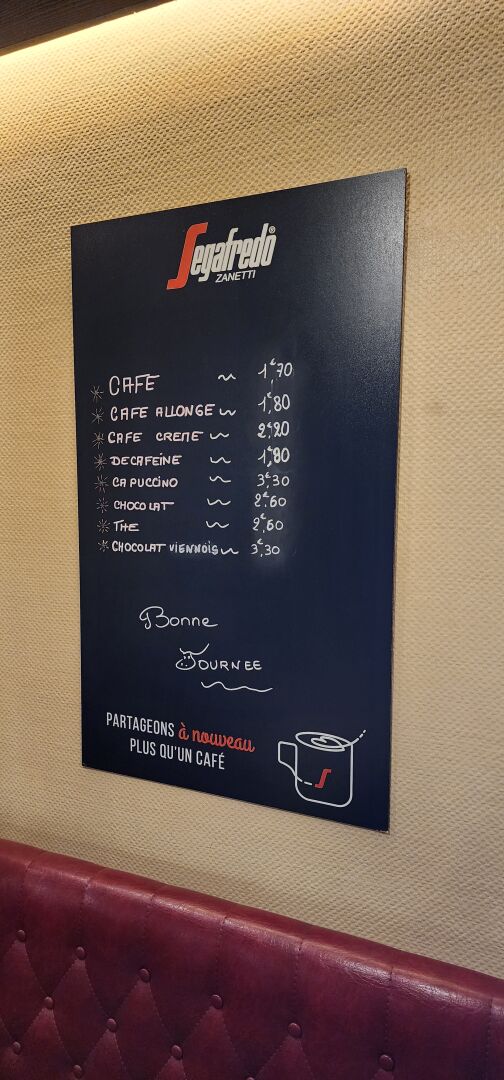 Segafredo®
ZANETTI
CAFE ~ 1€70
CAFE ALLONGE ~ 1€80
CAFE CREME ~ 2€20
DECAFEINE ~ 1€80
CAPUCCINO ~ 3€30
CHOCOLAT ~ 2€60
THE ~ 2€60
CHOCOLAT VIENNOIS ~ 3€30
Bonne
JOURNEE
PARTAGEONS à nouveau
PLUS QU'UN CAFÉ
S